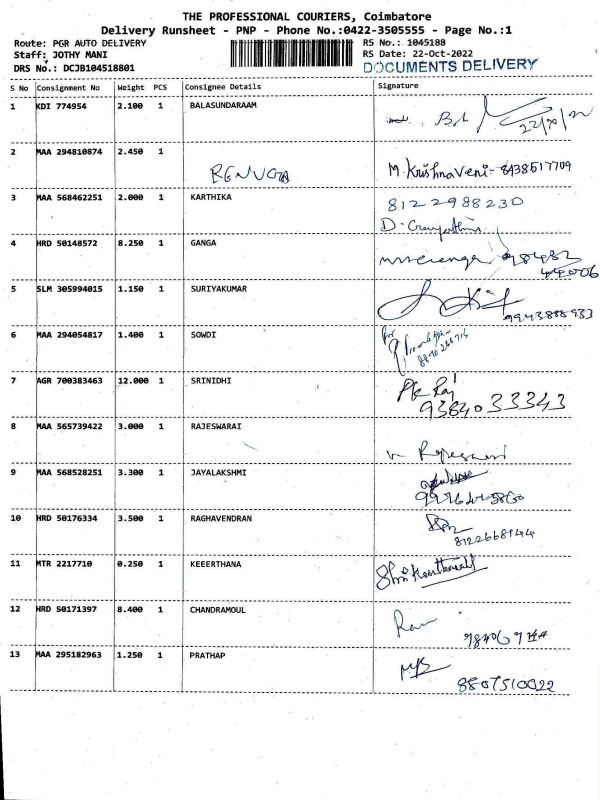 THE PROFESSIONAL COURIERS, Coimbatore
Delivery Runsheet - PNP - Phone No.:0422-3505555 - Page No.:1
Route: PGR AUTO DELIVERY RS No.: 1045188
Staff: JOTHY MANI RS Date: 22-Oct-2022
DRS No.: DCJB104518801 DOCUMENTS DELIVERY
S No Consignment No Weight PCS Consignee Details Signature
1 KDI 774954 2.100 1 BALASUNDARAAM
2 MAA 294810874 2.450 1
RENUGA M. Krishnaveni - 8438517709
3 MAA 568462251 2.000 1 KARTHIKA 8122988230
4 HRD 50148572 8.250 1 GANGA
5 SLM 305994015 1.150 1 SURIYAKUMAR
9943888933
6 MAA 294054817 1.400 1 SOWDI
7 AGR 700383463 12.000 1 SRINIDHI
9384033343
8 MAA 565739422 3.000 1 RAJESWARAI
9 MAA 568528251 3.300 1 JAYALAKSHMI
10 HRD 50176334 3.500 1 RAGHAVENDRAN
11 MTR 2217710 0.250 1 KEEERTHANA
12 HRD 50171397 8.400 1 CHANDRAMOUL
13 MAA 295182963 1.250 1 PRATHAP
8807510022